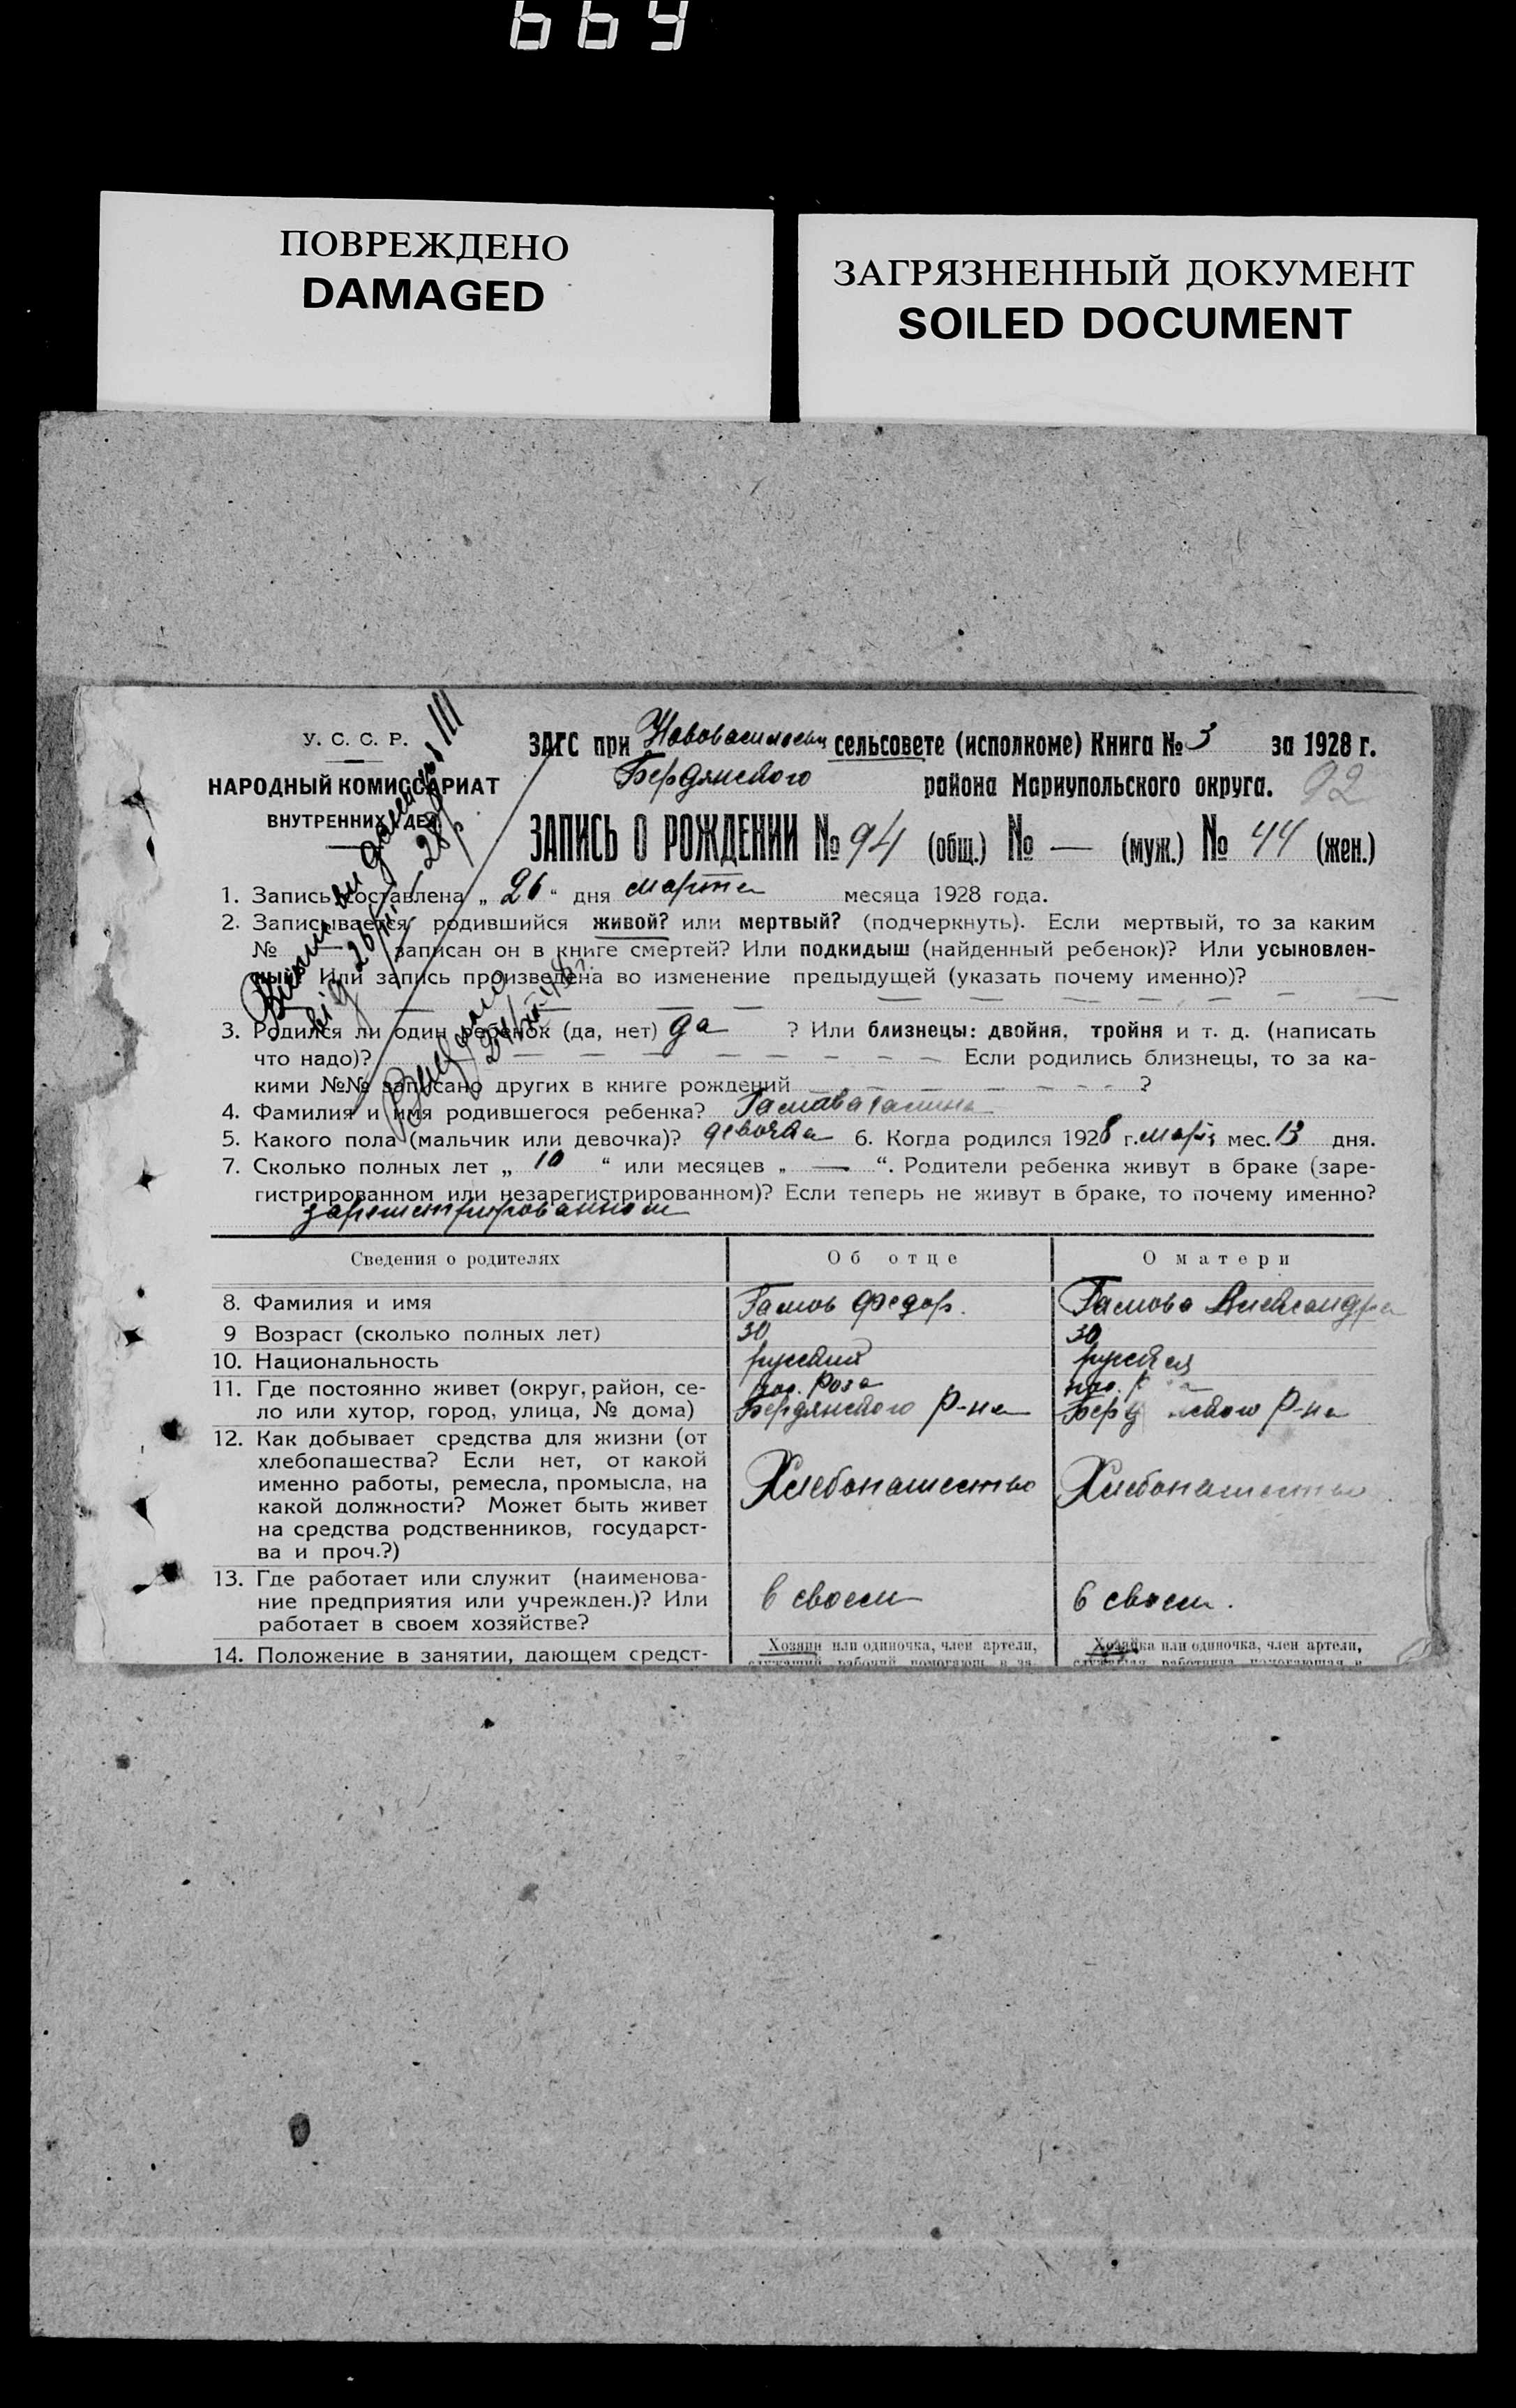 664
ПОВРЕЖДЕНО
DAMAGED
ЗАГРЯЗНЕННЫЙ ДОКУМЕНТ
SOILED DOCUMENT
У. С. С. Р.
НАРОДНЫЙ КОМИССАРИАТ
ВНУТРЕННИХ ДЕЛ
ЗАГС при сельсовете (исполкоме) Книга № 3 за 1928 г.
Бердянского района Мариупольского округа.
92
ЗАПИСЬ О РОЖДЕНИИ № 94 (общ.) № — (муж.) № 44 (жен.)
1. Запись составлена „ 26 “ дня марта месяца 1928 года.
2. Записывается родившийся живой? или мертвый? (подчеркнуть). Если мертвый, то за каким
№ — записан он в книге смертей? Или подкидыш (найденный ребенок)? Или усыновлен-
ный? Или запись произведена во изменение предыдущей (указать почему именно)?
3. Родился ли один ребенок (да, нет) да ? Или близнецы: двойня, тройня и т. д. (написать
что надо)? — — — — — — — — — Если родились близнецы, то за ка-
кими №№ записано других в книге рождений — — — — — — ?
4. Фамилия и имя родившегося ребенка? Гамова Галина
5. Какого пола (мальчик или девочка)? девочка 6. Когда родился 1928 г. мес. 13 дня.
7. Сколько полных лет „ 10 “ или месяцев „ — “. Родители ребенка живут в браке (заре-
гистрированном или незарегистрированном)? Если теперь не живут в браке, то почему именно?
зарегистрированном
Сведения о родителях Об отце О матери
8. Фамилия и имя Гамов Федор. Гамова Александра
9 Возраст (сколько полных лет) 30 30
10. Национальность русский русская
11. Где постоянно живет (округ, район, се- пос. Роза пос.
ло или хутор, город, улица, № дома) Бердянского р-на р-на
12. Как добывает средства для жизни (от
хлебопашества? Если нет, от какой
именно работы, ремесла, промысла, на Хлебопашество Хлебопашество
какой должности? Может быть живет
на средства родственников, государст-
ва и проч.?)
13. Где работает или служит (наименова-
ние предприятия или учрежден.)? Или в своем в своем.
работает в своем хозяйстве?
14. Положение в занятии, дающем средст- Хозяин или одиночка, член артели, Хозяйка или одиночка, член артели,